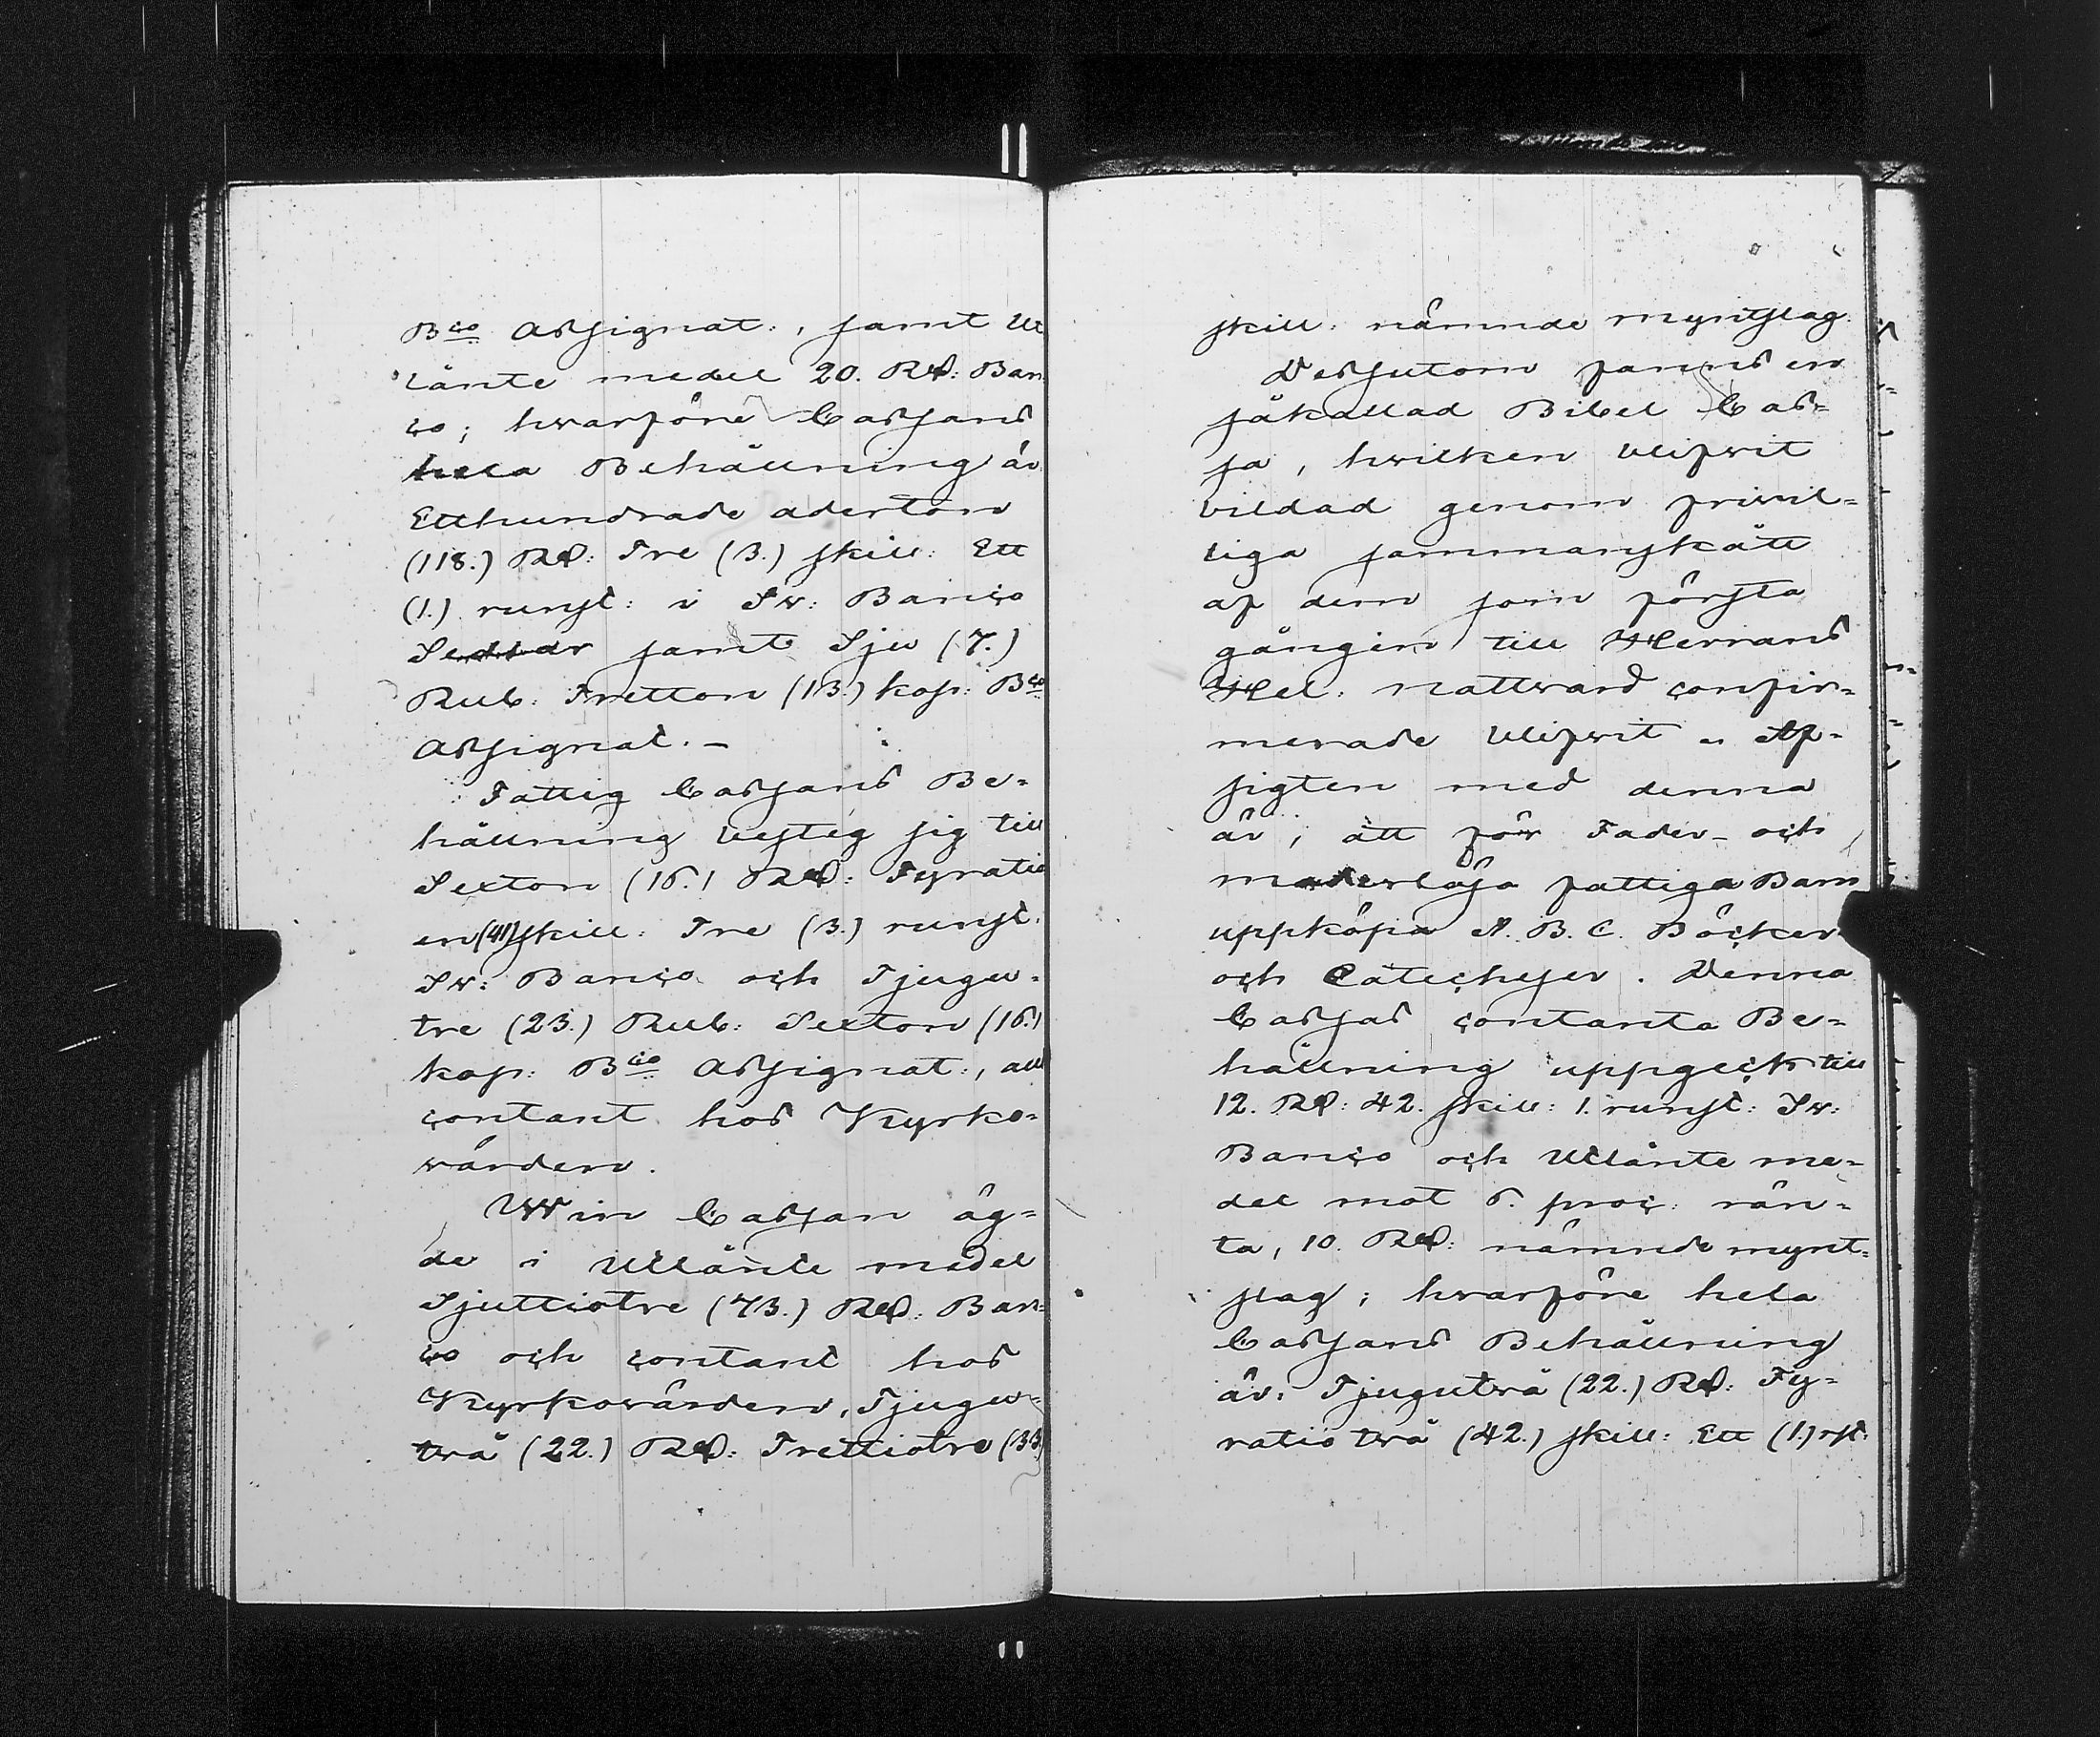 Bco Assignat:, samt Ut
länte medel 20. Rd: Ban
co; hvarföre Cassans
hela Behållning är
Etthundrade aderton
(118.) Rd: Tre (3.) skill: Ett
(1.) runst: i Sv: Banco
Sedlar samt Sju (7.)
Rub: Tretton (13.) kop: Bco
Assignat. –
Fattig Cassans Be=
hållning besteg sig till
Sexton (16.) Rd: Fyratio
en (41) skill: Tre (3.) runst.
Sv: Banco och Tjugu=
tre (23.) Rub: Sexton (16.)
kop: Bco Assignat:, allt
contant hos Kyrko=
värden.
Win Cassan äg=
de i Utlänte medel
Sjuttiotre (73.) Rd: Ban=
co och contant hos
Kyrkovärden, Tjugu=
två (22.) Rd: Trettiotre (33)
skill: nämnde myntslag.
Dessutom fanns en
såkallad Bibel Cas=
sa, hvilken blifvit
bildad genom frivil=
liga sammanskått
af dem som första
gången till Herrans
Hel: nattvard confir=
merade blifvit. Af=
sigten med denna
är, att för Fader- och
moderlösa fattiga Barn
uppköpa A. B. C. Böcker
och Catecheser. Denna
Cassas contanta Be=
hållning uppgeck till
12. Rd: 42. skill: 1. runst: Sv:
Banco och Utlänte me=
del mot 6. proc: rän=
ta, 10. Rd: nämnde mynt=
slag; hvarföre hela
Cassans Behållning
är: Tjugutvå (22.) Rd: Fy=
ratio två (42.) skill: Ett (1.) rst: